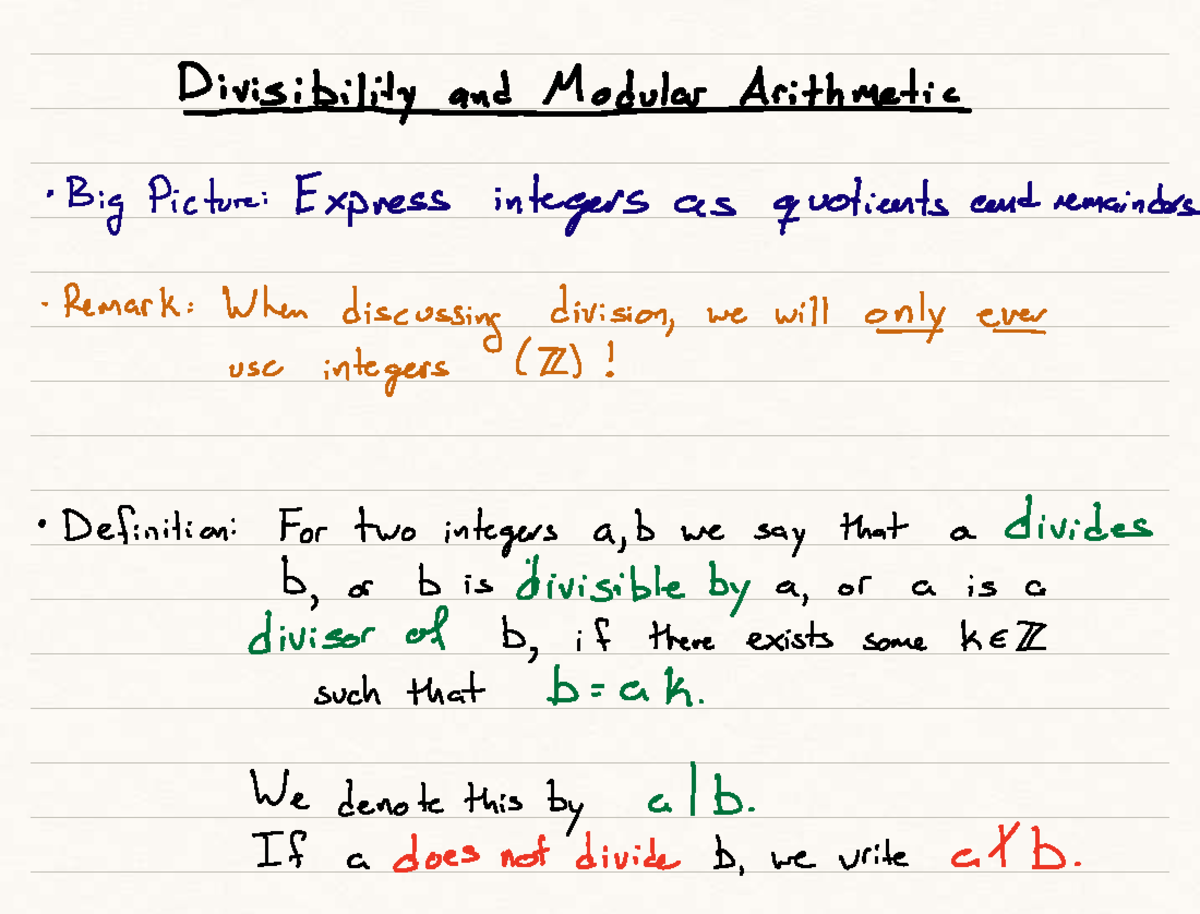 Divisibility and Modular Arithmetic
· Big Picture: Express integers as quotients and remainders
· Remark: When discussing division, we will only ever
use integers (ℤ)!
· Definition: For two integers a,b we say that a divides
b, or b is divisible by a, or a is a
divisor of b, if there exists some k∈ℤ
such that b=ak.
We denote this by a|b.
If a does not divide b, we write a∤b.